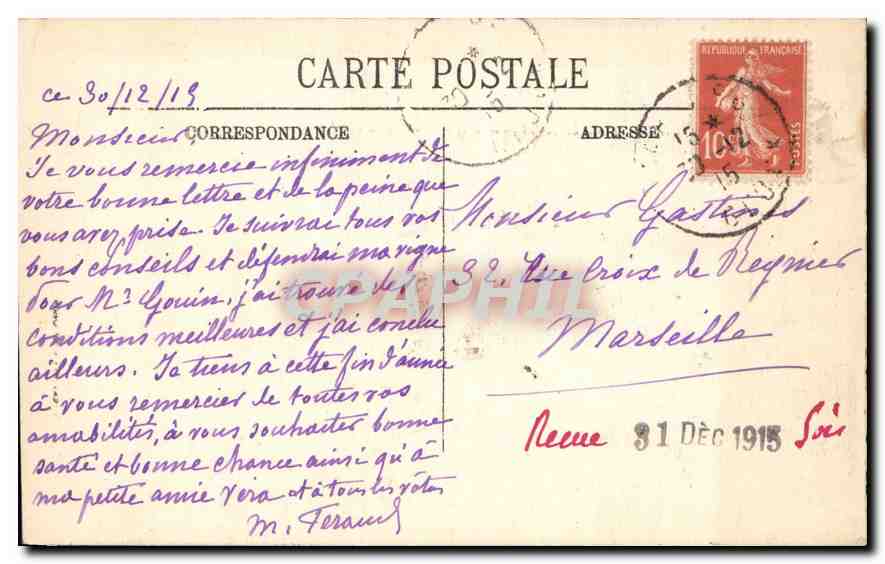 CARTE POSTALE
CORRESPONDANCE
ADRESSE
ce 30/12/15
Monsieur,
Je vous remercie infiniment de
votre bonne lettre et de la peine que
vous avez prise. Je suivrai tous vos
bons conseils et défendrai ma vigne
Pour Mr Gouin, j'ai trouvé des
conditions meilleures et j'ai conclu
ailleurs. Je tiens à cette fin d'année
à vous remercier de toutes vos
amabilités, à vous souhaiter bonne
santé et bonne chance ainsi qu'à
ma petite amie Vera et à tous les vôtres
M. Feraud
Monsieur
32, Rue Croix de Regnier
Marseille
Recue 31 DÉC 1915 Soir
REPUBLIQUE FRANÇAISE
10
POSTES
15
30 12
15
CPAPHIL